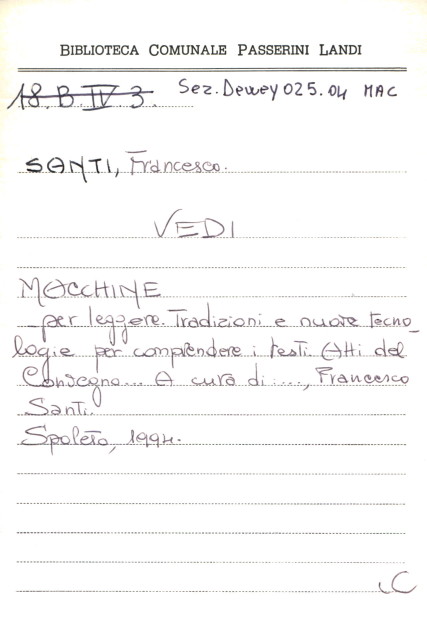 BIBLIOTECA COMUNALE PASSERINI LANDI
18.B.IV.3. Sez. Dewey 025.04 MAC
SANTI, Francesco.
VEDI
MACCHINE
per leggere. Tradizioni e nuove tecno_
logie per comprendere i testi. (Atti del
Convegno... A cura di ...., Francesco
Santi.
Spoleto, 1994.